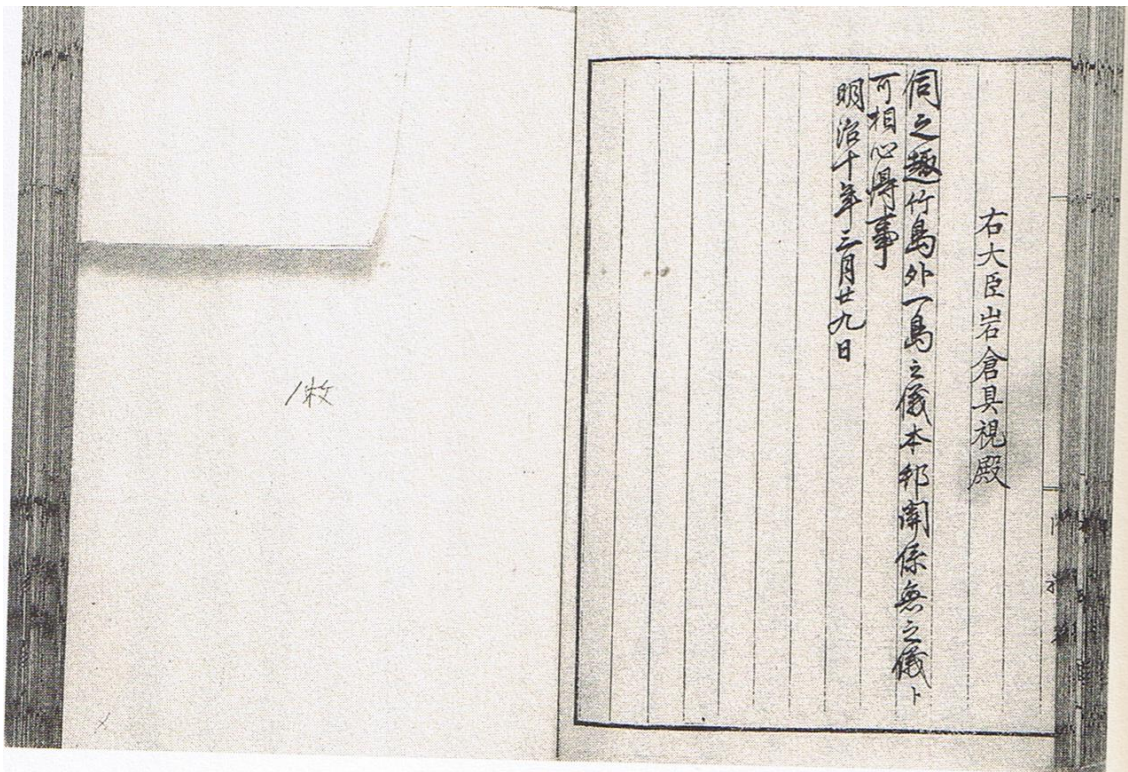 右大臣岩倉具視殿
伺之趣竹島外一島之儀本邦関係無之儀ト
可相心得事
明治十年三月廿九日
1枚